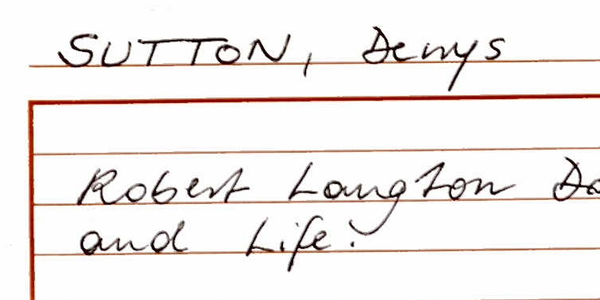 SUTTON, Denys
Robert Langton Do
and Life.